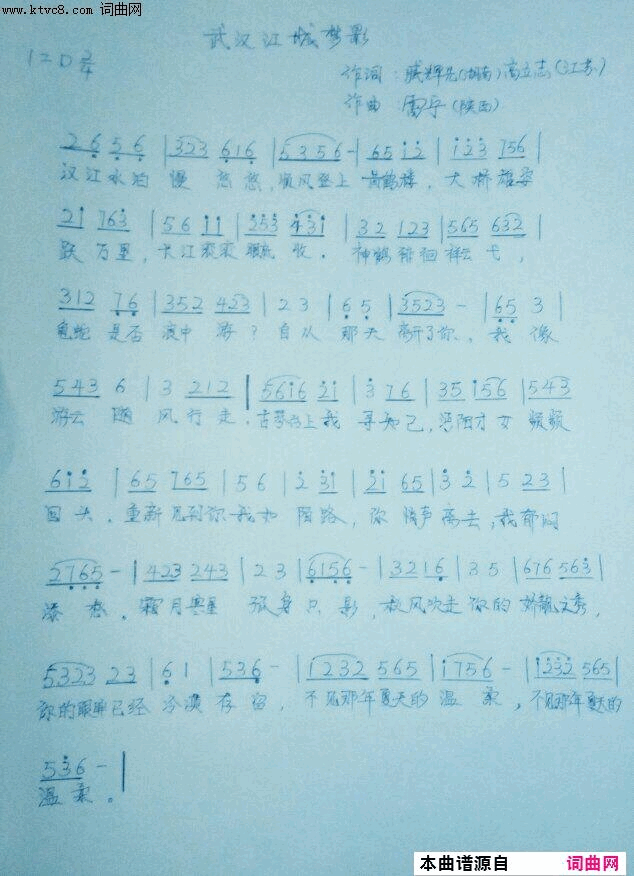 www.ktvc8.com 词曲网
武汉江城梦影
1=D 2/4
作词：臧辉先(湖南)高立志(江苏)
作曲：雷宇(陕西)
2656 |323 616 |5356- |65 12 |123 756 |
汉江水泊 慢 悠悠,顺风登上 黄鹤楼，大桥雄姿
21 763 |56 11 |253 431 |32 123 |565 632 |
跃 万里，长江滚滚 收。神鹤徘徊祥云弋，
312 76 |352 423 |23 |65 |3523 - |65 3 |
龟蛇是否 浪中 游？自从 那天 离开了你，我 像
543 6 |3 212 |5616 21 |3 76 |35 156 |543
游云 随 风行走，古琴台上我 寻知己，沔阳才女 频频
612 |65 765 |56 |2 31 |21 65 |3 2 |5 23 |
回头，重新见到你我如 陌路，你 悄声离去，我郁闷
2765 - |423 243 |23 |6156 - |3216 |35 |676 563 |
添愁。霜月寒星 孤身只影，秋风吹走你的 文秀，
5323 23 |61 |536 - |1232 565 |1756 - |1232 565 |
你的眼眸已经 冷漠存留，不见那年夏天的 温柔，不见那年夏天的
536 - |
温柔。
本曲谱源自 词曲网